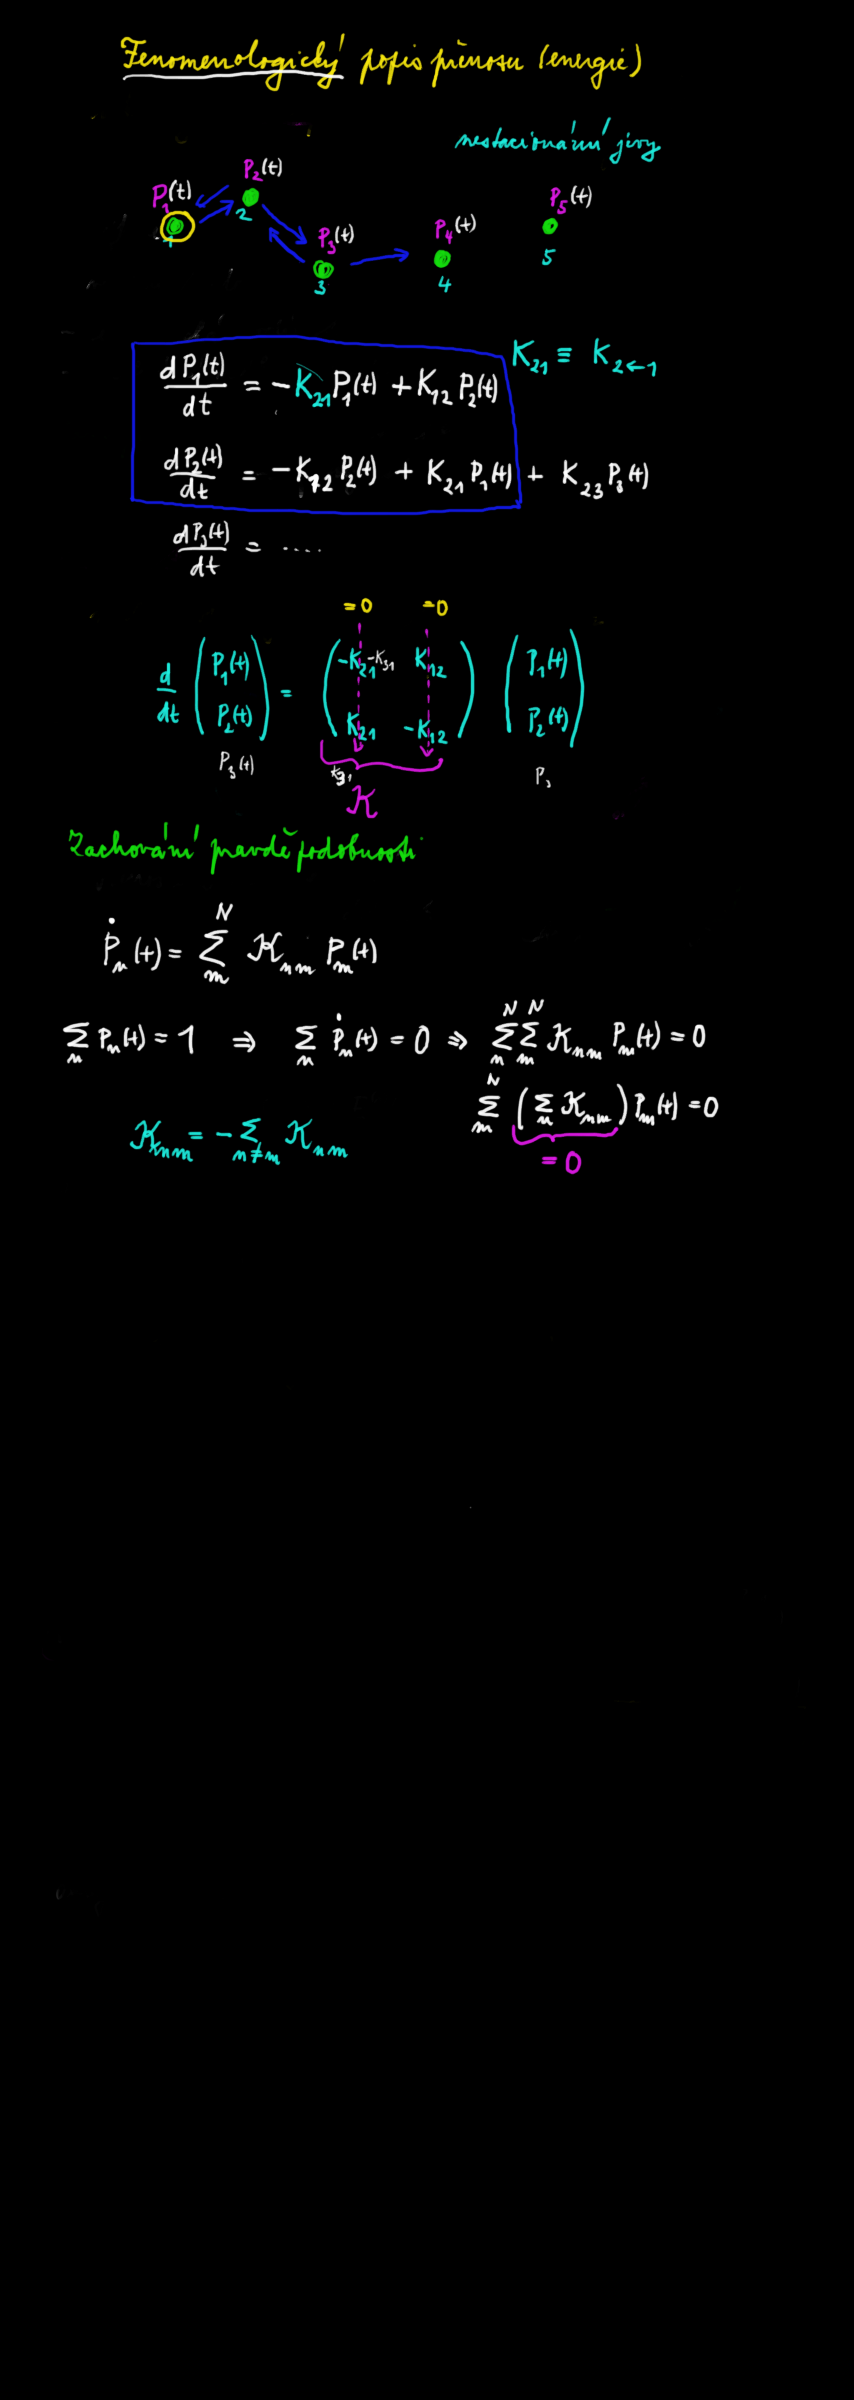 Fenomenologický popis přenosu (energie)
nestacionární jevy
P₁(t) P₂(t) P₃(t) P₄(t) P₅(t)
1 2 3 4 5
K₂₁ ≡ K₂←₁
dP₁(t)/dt = -K₂₁P₁(t) + K₁₂P₂(t)
dP₂(t)/dt = -K₁₂P₂(t) + K₂₁P₁(t) + K₂₃P₃(t)
dP₃(t)/dt = ....
=0 =0
d/dt (P₁(t) P₂(t)) = (-K₂₁ -K₃₁ K₁₂ K₂₁ -K₁₂) (P₁(t) P₂(t))
P₃(t) K₃₁ P₃
K
Zachování pravděpodobnosti
Ṗₙ(t) = Σₘᴺ Kₙₘ Pₘ(t)
Σₙ Pₙ(t) = 1 ⇒ Σₙ Ṗₙ(t) = 0 ⇒ Σₙᴺ Σₘᴺ Kₙₘ Pₘ(t) = 0
Σₘᴺ (Σₙ Kₙₘ) Pₘ(t) = 0
= 0
Kₘₘ = -Σₙ≠ₘ Kₙₘ